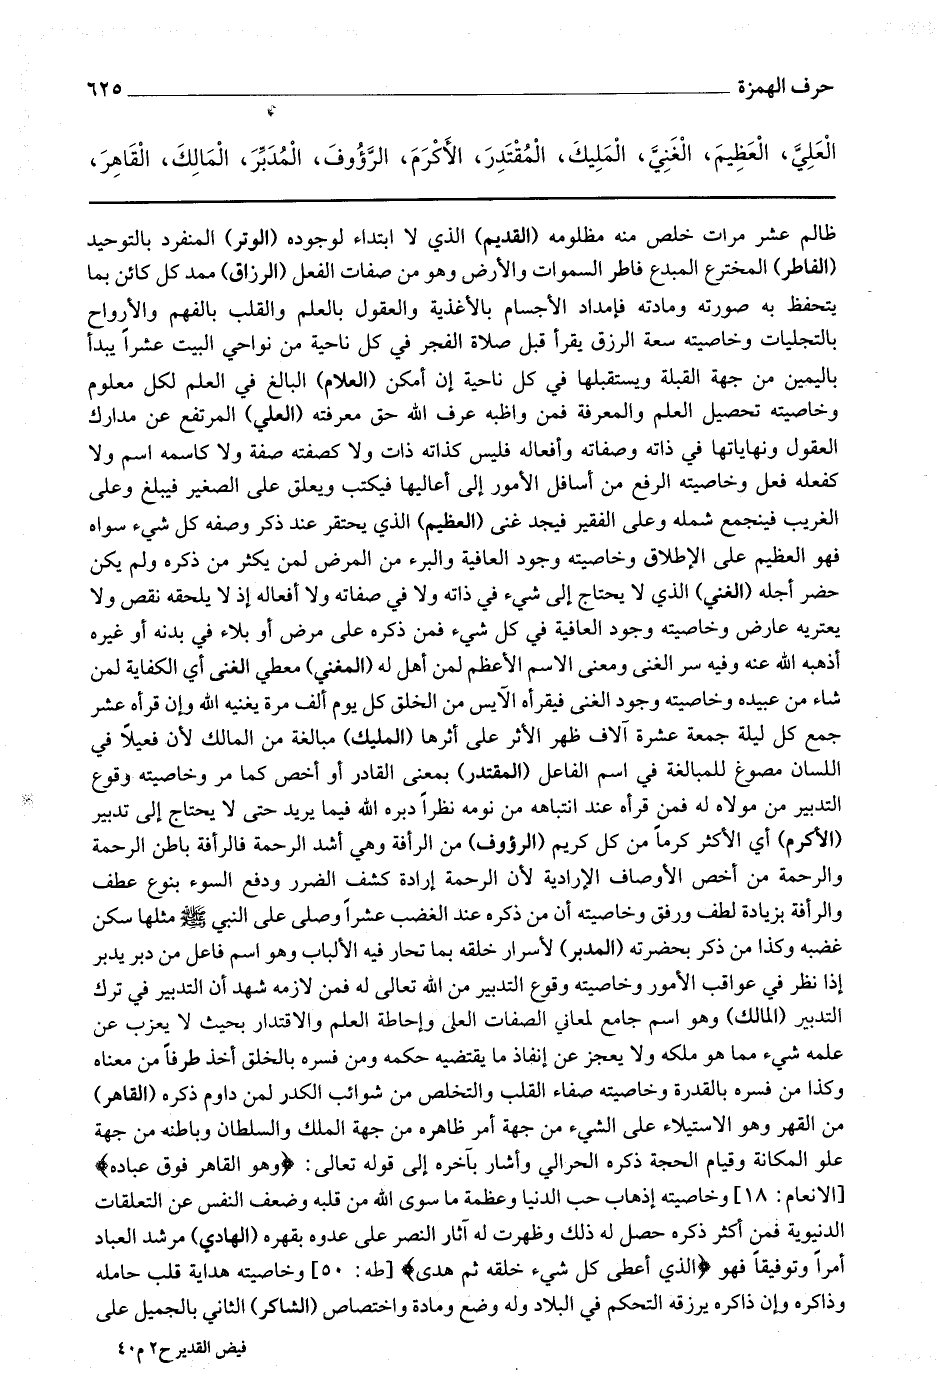 حرف الهمزة ٦٢٥
الْعَلِيَّ، الْعَظِيمَ، الْغَنِيَّ، الْمَلِيكَ، الْمُقْتَدِرَ، الأَكْرَمَ، الرَّؤُوفَ، الْمُدَبِّرَ، الْمَالِكَ، الْقَاهِرَ،
ظالم عشر مرات خلص منه مظلومه (القديم) الذي لا ابتداء لوجوده (الوتر) المنفرد بالتوحيد
(الفاطر) المخترع المبدع فاطر السموات والأرض وهو من صفات الفعل (الرزاق) ممد كل كائن بما
يتحفظ به صورته ومادته فإمداد الأجسام بالأغذية والعقول بالعلم والقلب بالفهم والأرواح
بالتجليات وخاصيته سعة الرزق يقرأ قبل صلاة الفجر في كل ناحية من نواحي البيت عشراً يبدأ
باليمين من جهة القبلة ويستقبلها في كل ناحية إن أمكن (العلام) البالغ في العلم لكل معلوم
وخاصيته تحصيل العلم والمعرفة فمن واظبه عرف الله حق معرفته (العلي) المرتفع عن مدارك
العقول ونهاياتها في ذاته وصفاته وأفعاله فليس كذاته ذات ولا كصفته صفة ولا كاسمه اسم ولا
كفعله فعل وخاصيته الرفع من أسافل الأمور إلى أعاليها فيكتب ويعلق على الصغير فيبلغ وعلى
الغريب فينجمع شمله وعلى الفقير فيجد غنى (العظيم) الذي يحتقر عند ذكر وصفه كل شيء سواه
فهو العظيم على الإطلاق وخاصيته وجود العافية والبرء من المرض لمن يكثر من ذكره ولم يكن
حضر أجله (الغني) الذي لا يحتاج إلى شيء في ذاته ولا في صفاته ولا أفعاله إذ لا يلحقه نقص ولا
يعتريه عارض وخاصيته وجود العافية في كل شيء فمن ذكره على مرض أو بلاء في بدنه أو غيره
أذهبه الله عنه وفيه سر الغنى ومعنى الاسم الأعظم لمن أهل له (المغني) معطي الغنى أي الكفاية لمن
شاء من عبيده وخاصيته وجود الغنى فيقرأه الآيس من الخلق كل يوم ألف مرة يغنيه الله وإن قرأه عشر
جمع كل ليلة جمعة عشرة آلاف ظهر الأثر على أثرها (المليك) مبالغة من المالك لأن فعيلاً في
اللسان مصوغ للمبالغة في اسم الفاعل (المقتدر) بمعنى القادر أو أخص كما مر وخاصيته وقوع
التدبير من مولاه له فمن قرأه عند انتباهه من نومه نظراً دبره الله فيما يريد حتى لا يحتاج إلى تدبير
(الأكرم) أي الأكثر كرماً من كل كريم (الرؤوف) من الرأفة وهي أشد الرحمة فالرأفة باطن الرحمة
والرحمة من أخص الأوصاف الإرادية لأن الرحمة إرادة كشف الضرر ودفع السوء بنوع عطف
والرأفة بزيادة لطف ورفق وخاصيته أن من ذكره عند الغضب عشراً وصلى على النبي ﷺ مثلها سكن
غضبه وكذا من ذكر بحضرته (المدبر) لأسرار خلقه بما تحار فيه الألباب وهو اسم فاعل من دبر يدبر
إذا نظر في عواقب الأمور وخاصيته وقوع التدبير من الله تعالى له فمن لازمه شهد أن التدبير في ترك
التدبير (المالك) وهو اسم جامع لمعاني الصفات العلى وإحاطة العلم والاقتدار بحيث لا يعزب عن
علمه شيء مما هو ملكه ولا يعجز عن إنفاذ ما يقتضيه حكمه ومن فسره بالخلق أخذ طرفاً من معناه
وكذا من فسره بالقدرة وخاصيته صفاء القلب والتخلص من شوائب الكدر لمن داوم ذكره (القاهر)
من القهر وهو الاستيلاء على الشيء من جهة أمر ظاهره من جهة الملك والسلطان وباطنه من جهة
علو المكانة وقيام الحجة ذكره الحرالي وأشار بآخره إلى قوله تعالى: ﴿وهو القاهر فوق عباده﴾
[الانعام: ١٨] وخاصيته إذهاب حب الدنيا وعظمة ما سوى الله من قلبه وضعف النفس عن التعلقات
الدنيوية فمن أكثر ذكره حصل له ذلك وظهرت له آثار النصر على عدوه بقهره (الهادي) مرشد العباد
أمراً وتوفيقاً فهو ﴿الذي أعطى كل شيء خلقه ثم هدى﴾ [طه: ٥٠] وخاصيته هداية قلب حامله
وذاكره وإن ذاكره يرزقه التحكم في البلاد وله وضع ومادة واختصاص (الشاكر) الثاني بالجميل على
فيض القدير ج٢ م٤٠